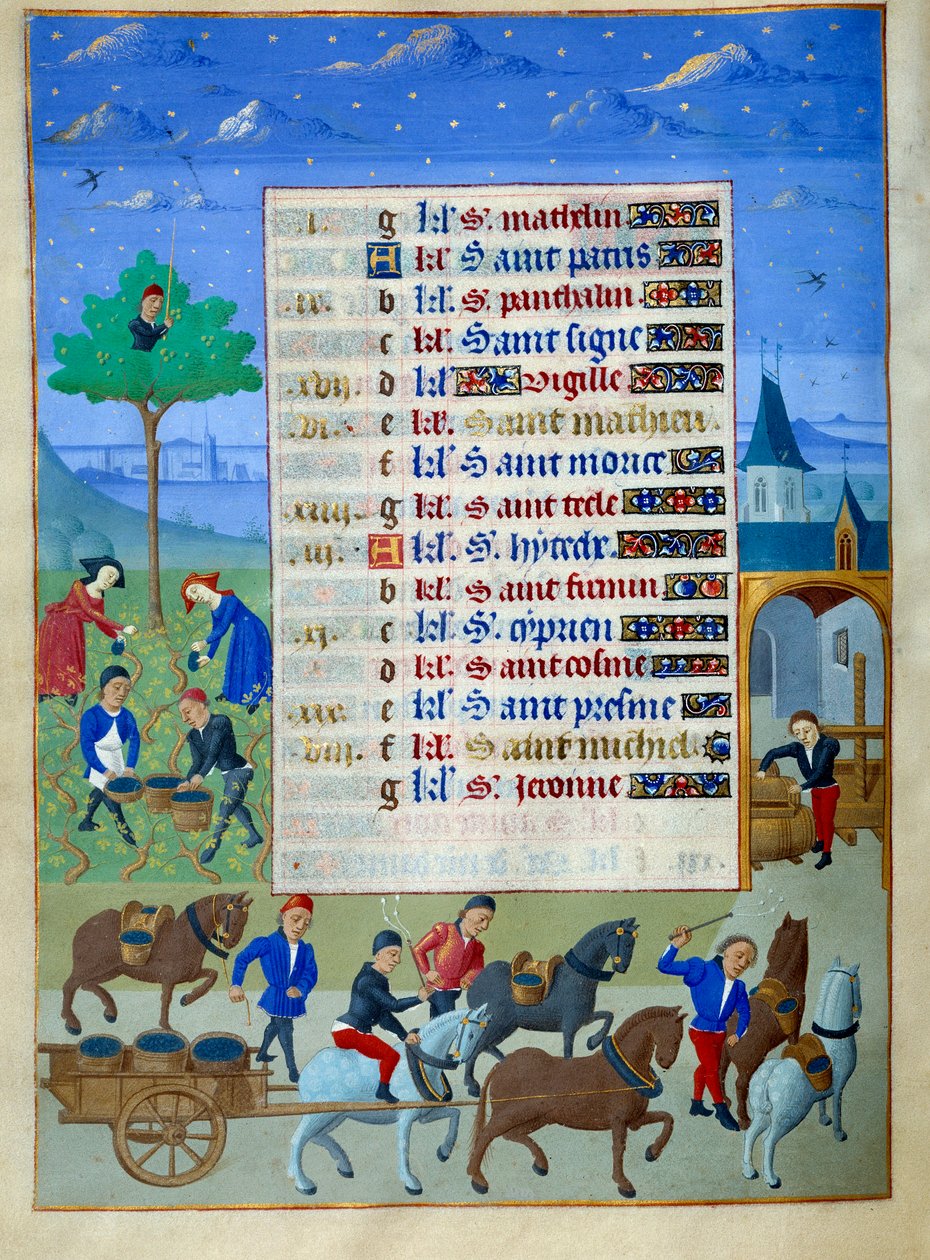 .i. g kl' S'. mathelin
A kl' Saint patris
.ix. b kl' S'. panthalin
c kl' Saint signe
.xvii. d kl' Vigille
.vi. e kl'. Saint mathieu.
f kl' Saint morice
.xiiii. g kl' Saint tecle
.iii. A kl' S'.
b kl'. Saint firmin
.xi. c kl'. S'. cyprien
d kl'. Saint cosme
.xix. e kl' Saint presme
.viii. f kl'. Saint michiel
g kl' S'. Jeronne